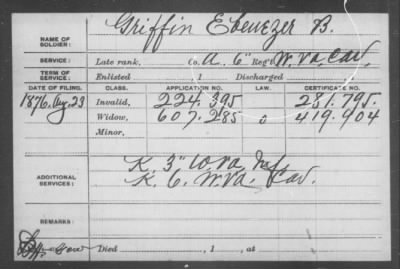 NAME OF SOLDIER: Griffin Ebenezer B.
SERVICE: Late rank, Co. A, 6" Reg't W. Va. Cav.
TERM OF SERVICE: Enlisted , 1 Discharged
DATE OF FILING. CLASS. APPLICATION NO. LAW. CERTIFICATE NO.
1876, Aug, 23 Invalid, 224.395 281.795.
Widow, 607.285 419.904
Minor,
ADDITIONAL SERVICES: K. 3" W. Va. Inf
K. 6. W. Va. Cav.
REMARKS:
Died , 1 , at